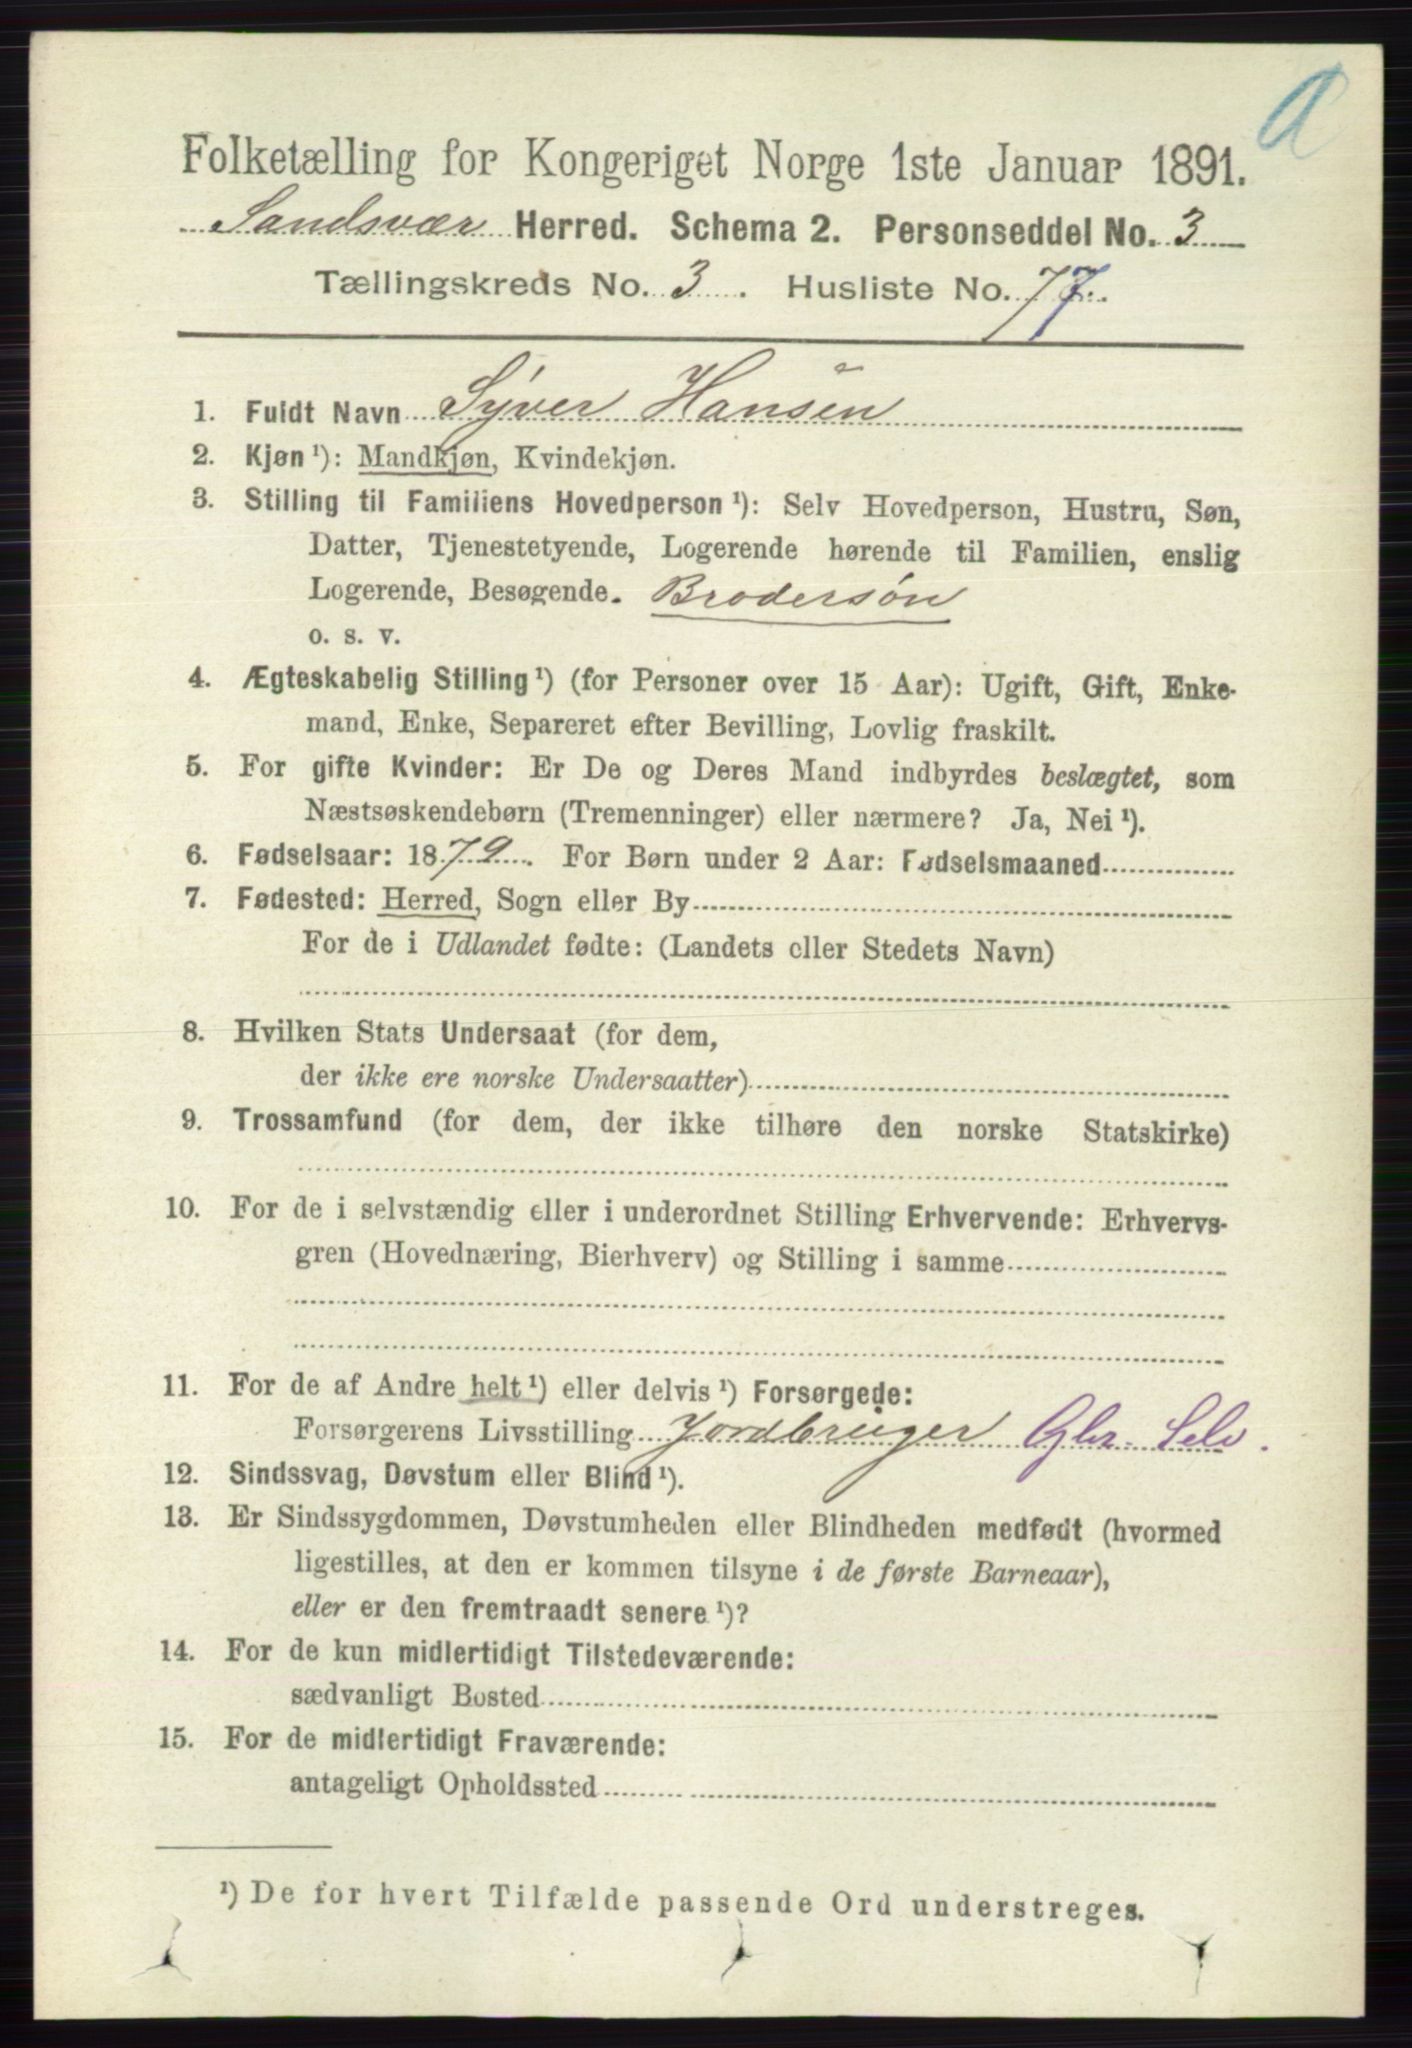 a
Folketælling for Kongeriget Norge 1ste Januar 1891.
Sandsvær Herred. Schema 2. Personseddel No. 3
Tællingskreds No. 3. Husliste No. 77.
1. Fuldt Navn Syver Hansen
2. Kjøn ¹): Mandkjøn, Kvindekjøn.
3. Stilling til Familiens Hovedperson ¹): Selv Hovedperson, Hustru, Søn,
Datter, Tjenestetyende, Logerende hørende til Familien, enslig
Logerende, Besøgende. Brodersøn
o. s. v.
4. Ægteskabelig Stilling ¹) (for Personer over 15 Aar): Ugift, Gift, Enke-
mand, Enke, Separeret efter Bevilling, Lovlig fraskilt.
5. For gifte Kvinder: Er De og Deres Mand indbyrdes beslægtet, som
Næstsøskendebørn (Tremenninger) eller nærmere? Ja, Nei ¹).
6. Fødselsaar: 1879. For Børn under 2 Aar: Fødselsmaaned
7. Fødested: Herred, Sogn eller By
For de i Udlandet fødte: (Landets eller Stedets Navn)
8. Hvilken Stats Undersaat (for dem,
der ikke ere norske Undersaatter)
9. Trossamfund (for dem, der ikke tilhøre den norske Statskirke)
10. For de i selvstændig eller i underordnet Stilling Erhvervende: Erhvervs-
gren (Hovednæring, Bierhverv) og Stilling i samme
11. For de af Andre helt ¹) eller delvis ¹) Forsørgede:
Forsørgerens Livsstilling Jordbruger Gbr. Selv.
12. Sindssvag, Døvstum eller Blind ¹).
13. Er Sindssygdommen, Døvstumheden eller Blindheden medfødt (hvormed
ligestilles, at den er kommen tilsyne i de første Barneaar),
eller er den fremtraadt senere ¹)?
14. For de kun midlertidigt Tilstedeværende:
sædvanligt Bosted
15. For de midlertidigt Fraværende:
antageligt Opholdssted
¹) De for hvert Tilfælde passende Ord understreges.